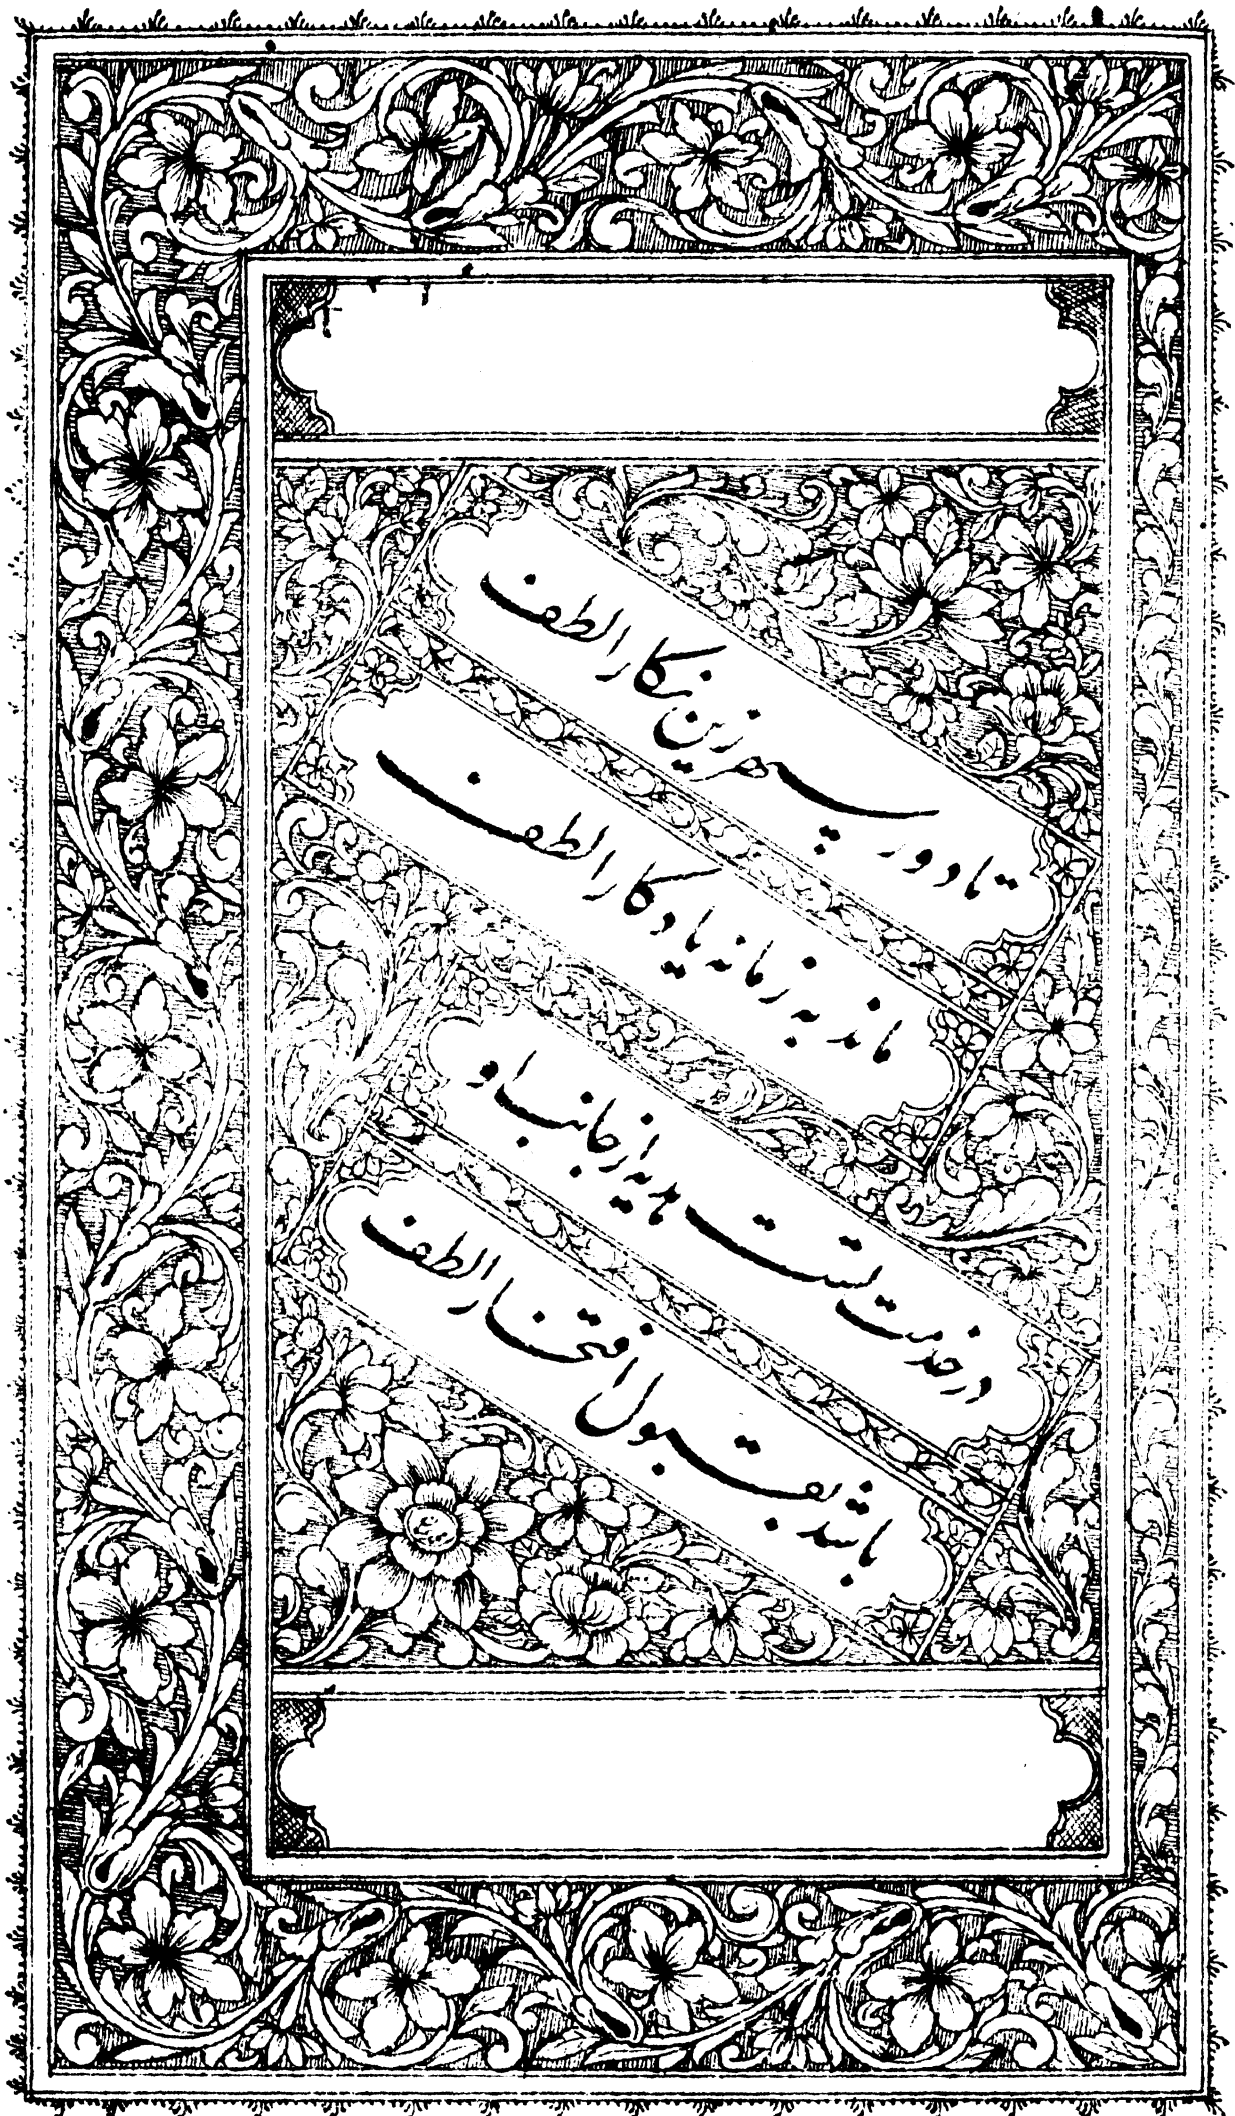 تا دور سپهر زین نگار الطف
ماند به زمانه یادگار الطف
در خدمت تست هدیه از جانب او
باشد بقبول افتخار الطف